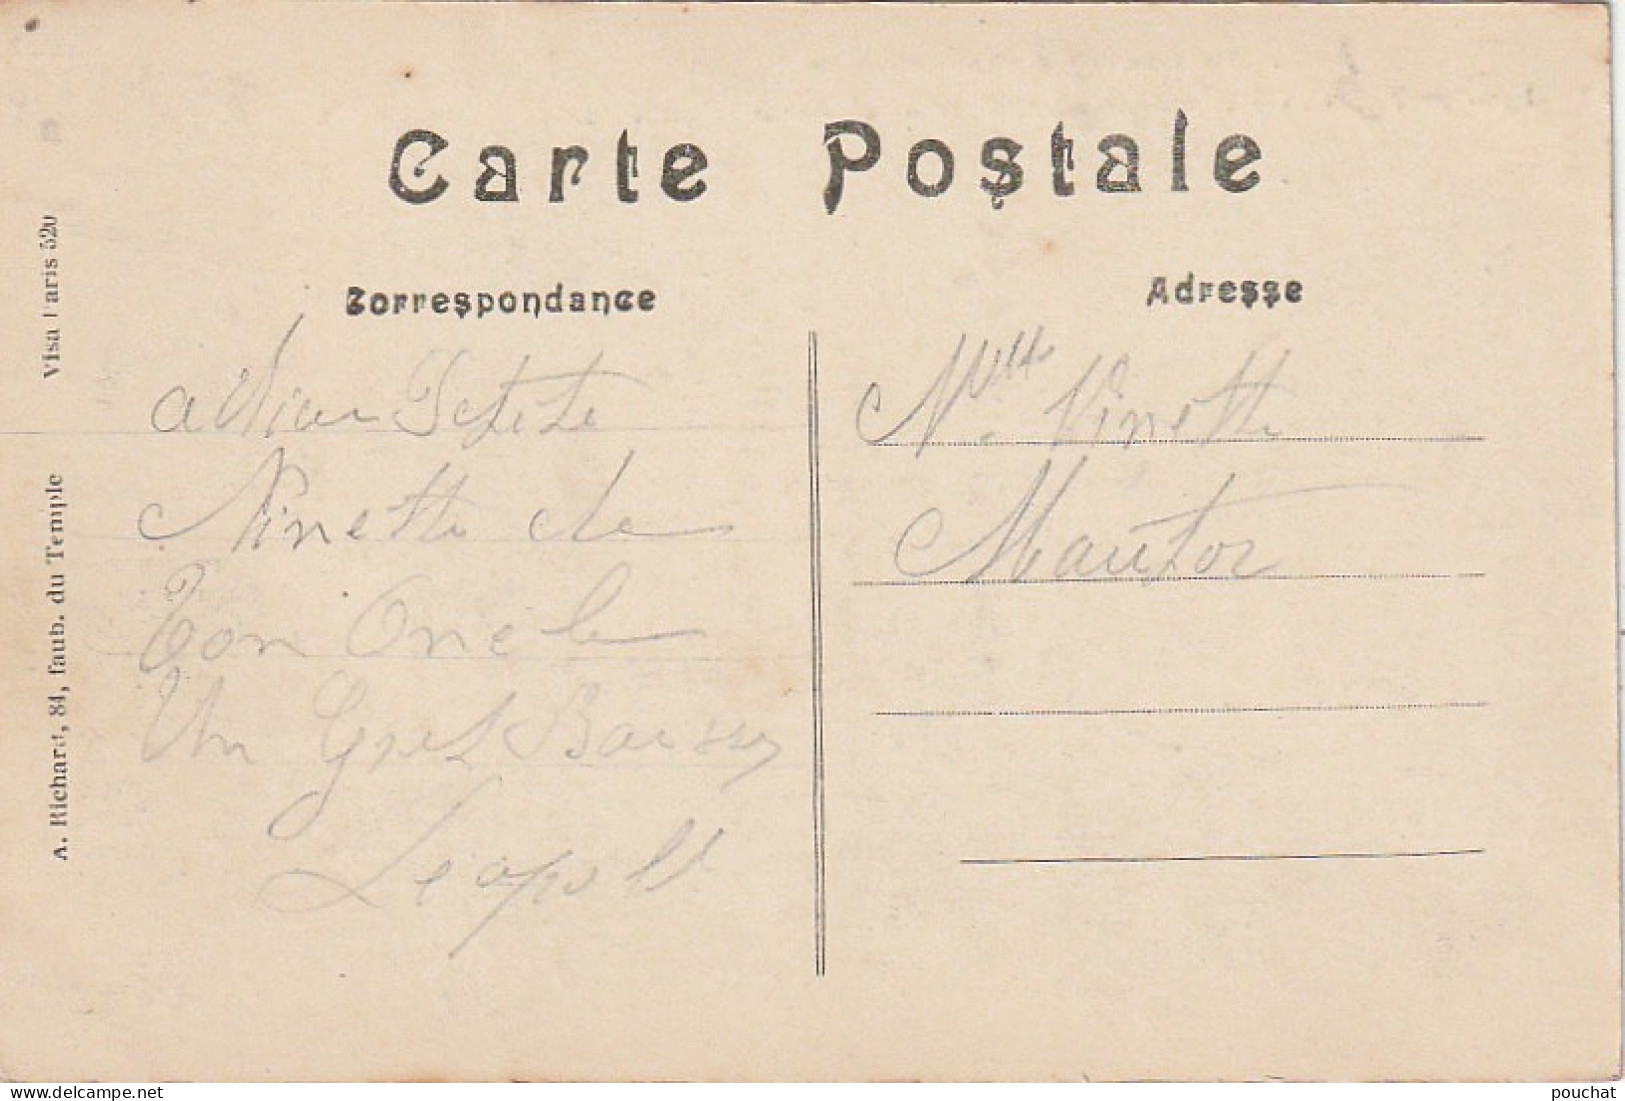 Carte Postale
Correspondance
Adresse
Ninette de
Ton Oncle
Un Gros Baiser
Leopold
Mlle Ninette
A. Richard, 84, faub. du Temple
Visa Paris 520
delcampe.net
pouchat